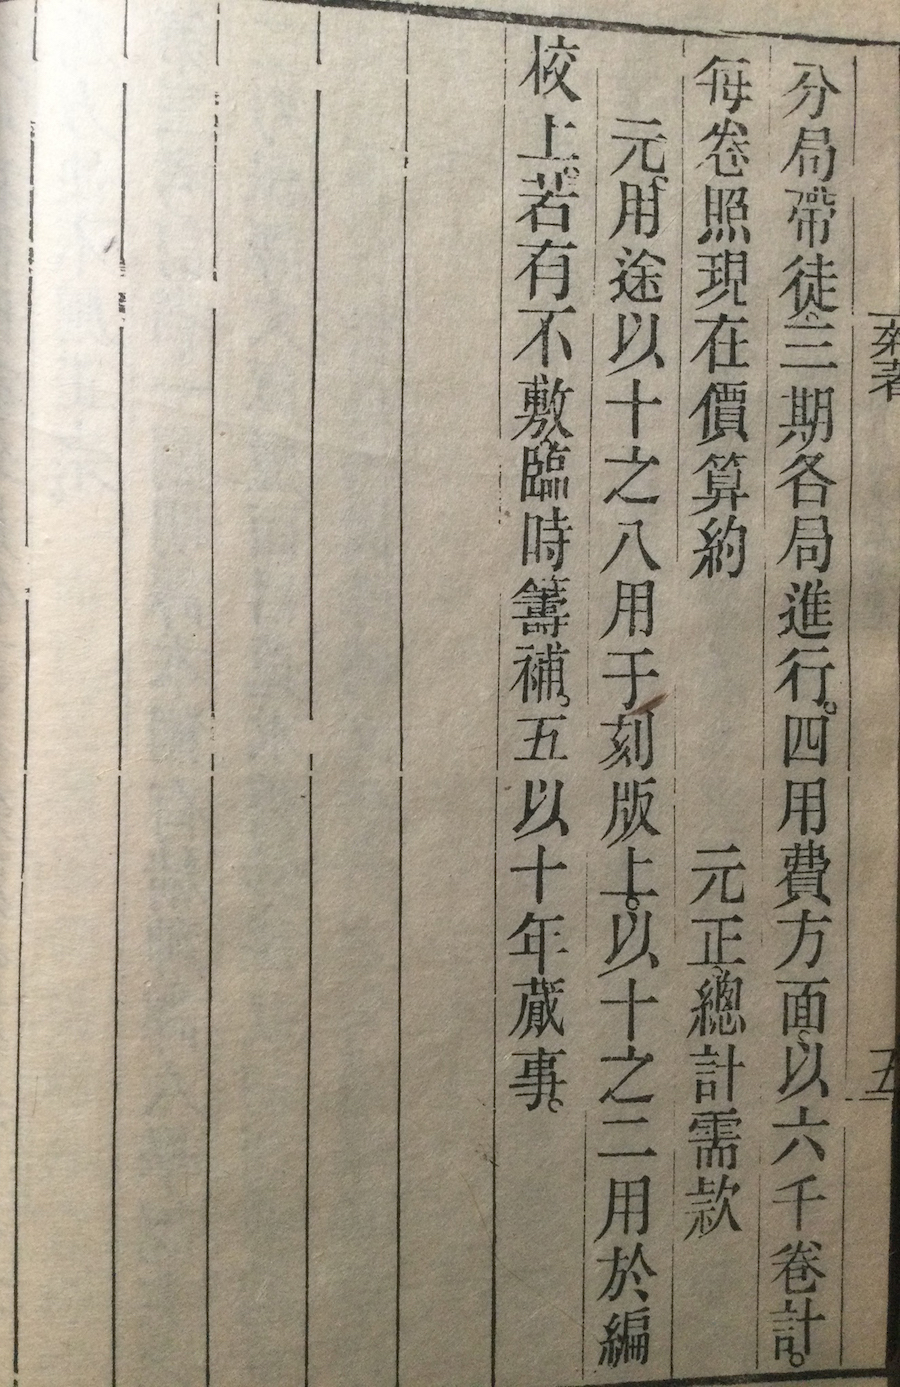 雜著
五
分局帶徒。三期各局進行。四用費方面、以六千卷計。
每卷照現在價算約 元正、總計需款
元、用途以十之八用于刻版上。以十之二用於編
校上。若有不敷、臨時籌補。五以十年蕆事。